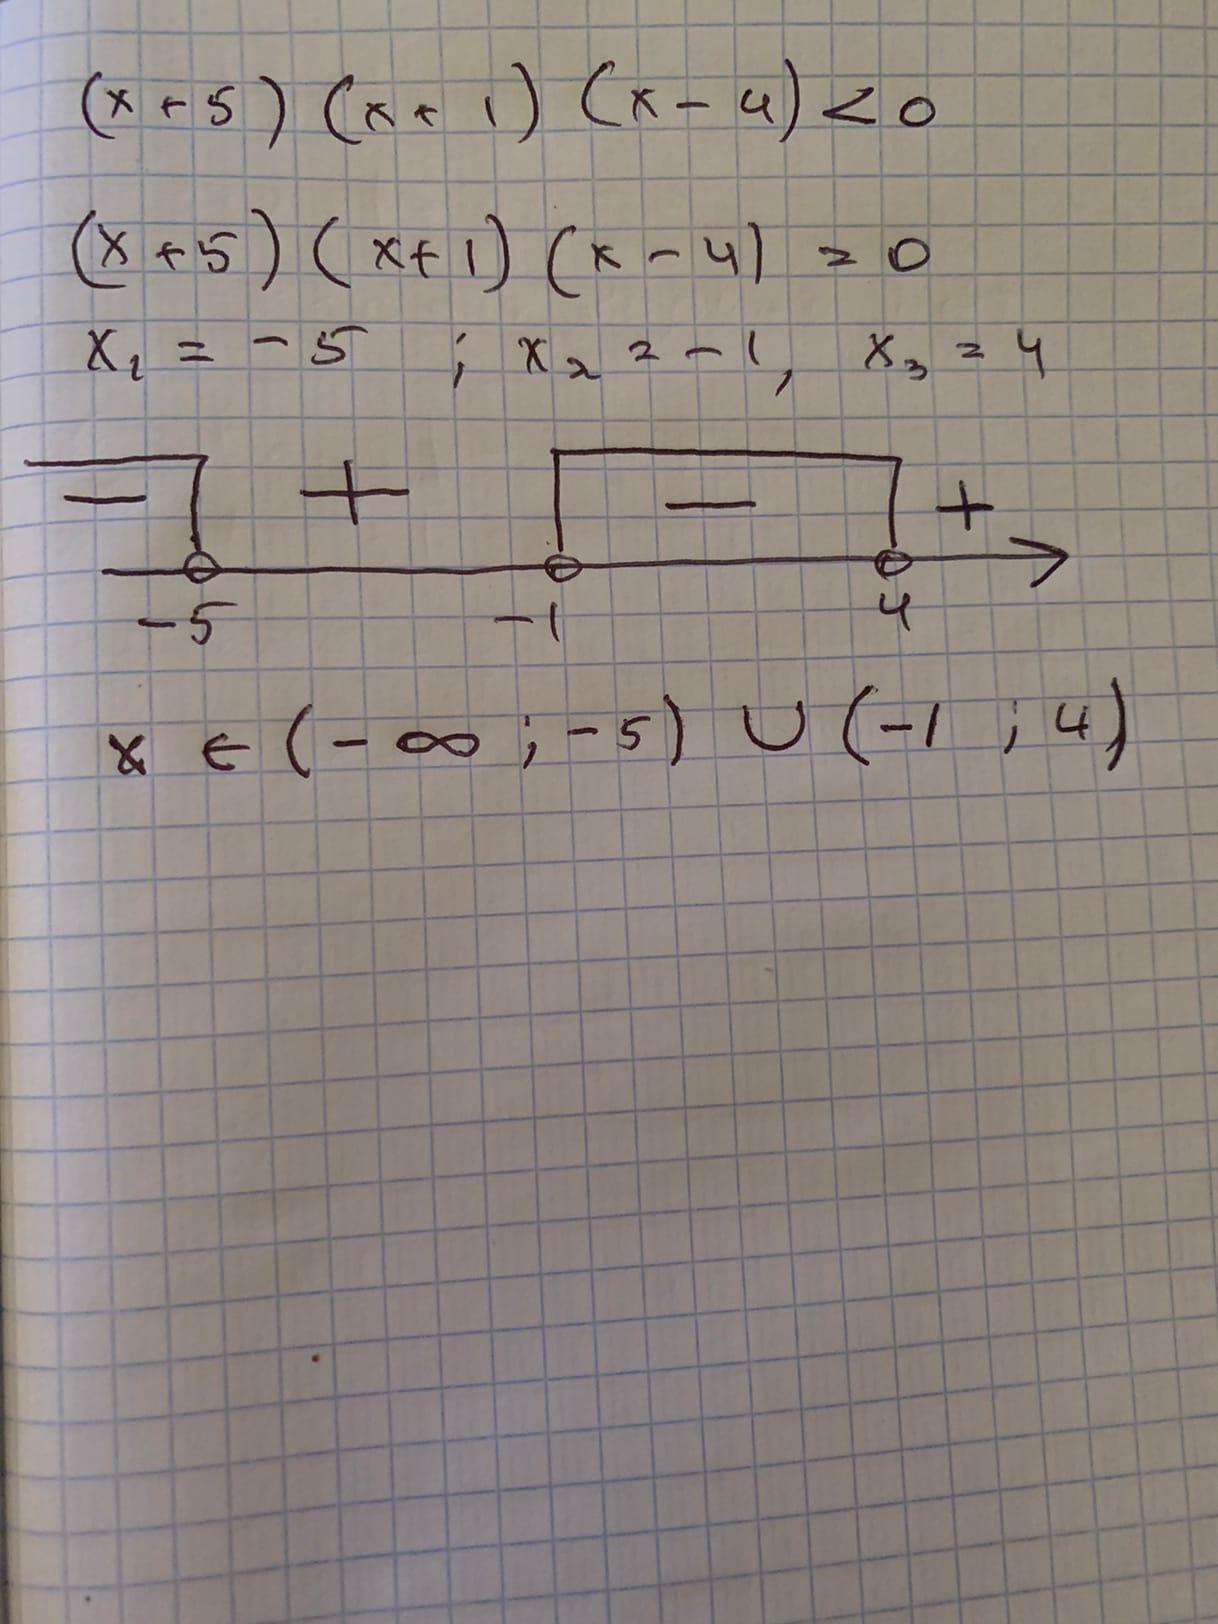 (x + 5) (x + 1) (x - 4) < 0
(x + 5) (x + 1) (x - 4) = 0
x₁ = -5 ; x₂ = -1, x₃ = 4
- + - +
-5 -1 4
x ∈ (-∞ ; -5) ∪ (-1 ; 4)